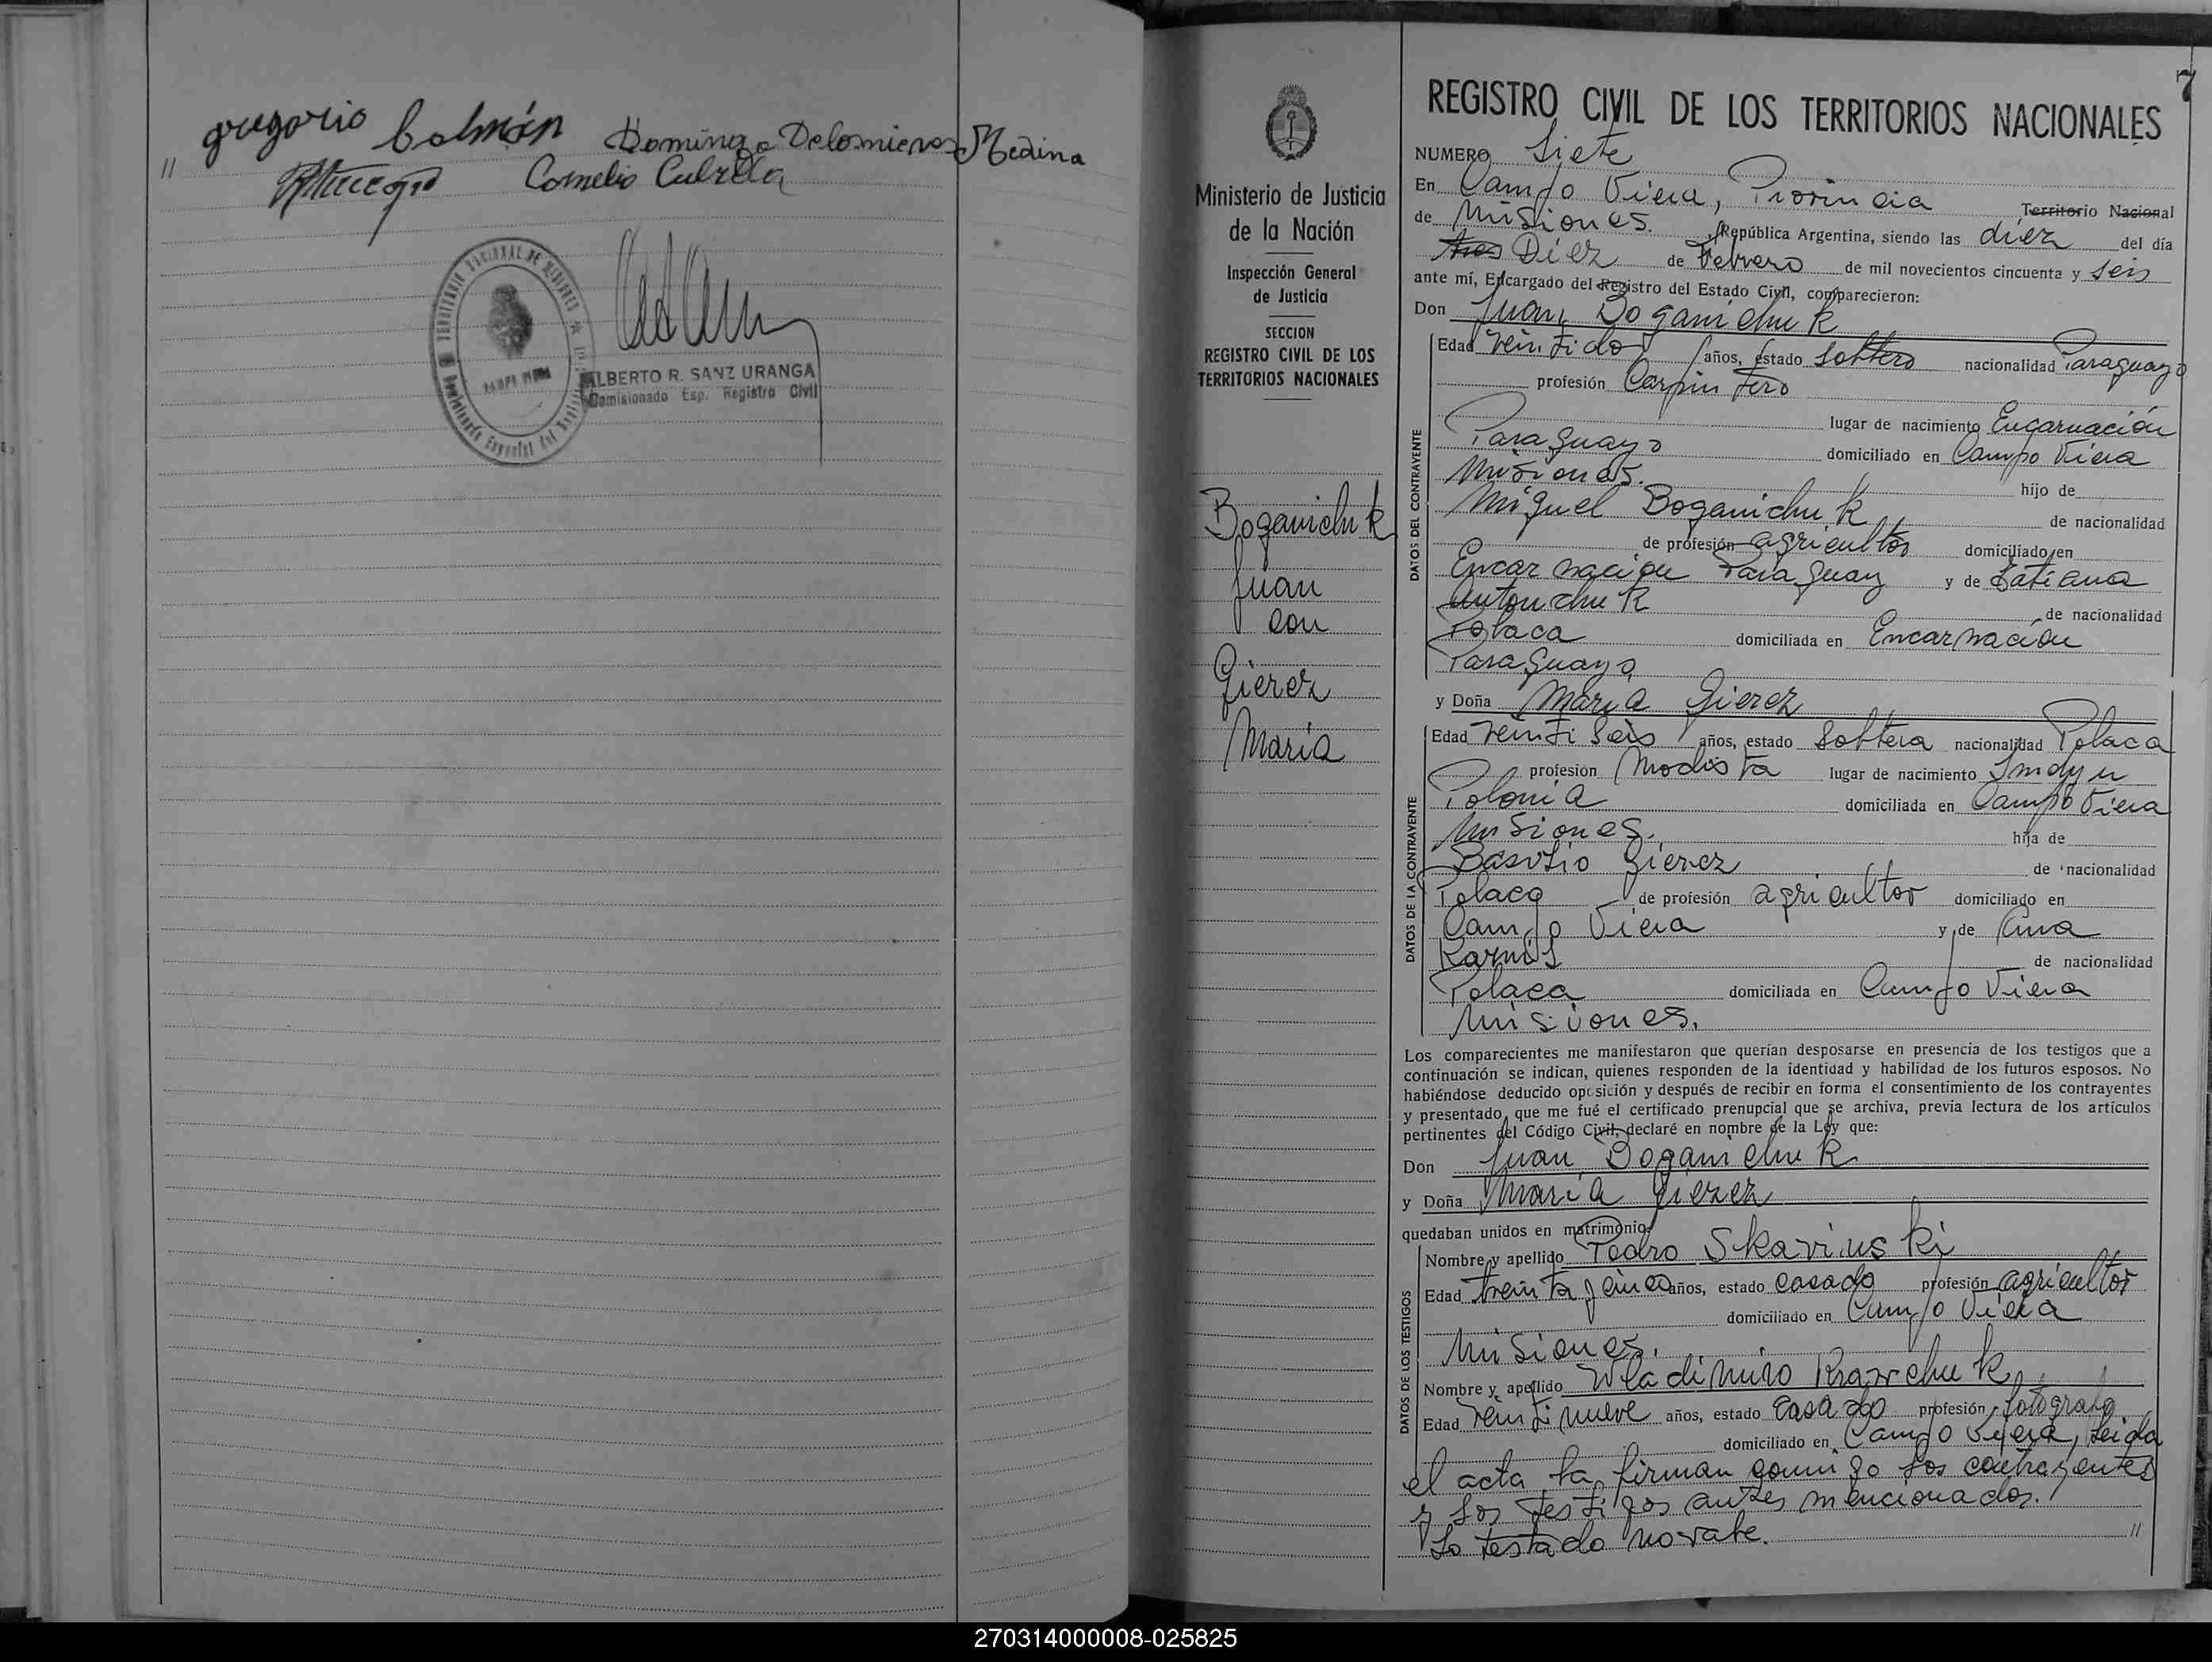 gregorio Colmán Domingo Delomieres Medina
"
Cornelio Cubilla
TERRITORIO NACIONAL DE MISIONES
ALBERTO R. SANZ URANGA
Comisionado Esp. Registro Civil
7
Ministerio de Justicia
de la Nación
Inspección General
de Justicia
SECCION
REGISTRO CIVIL DE LOS
TERRITORIOS NACIONALES
Boganichuk
Juan
con
Gierez
María
REGISTRO CIVIL DE LOS TERRITORIOS NACIONALES
NUMERO Siete
En Campo Viera, Provincia Territorio Nacional
de Misiones. República Argentina, siendo las diez del día
tres Diez de Febrero de mil novecientos cincuenta y seis
ante mí, Encargado del Registro del Estado Civil, comparecieron:
Don Juan Boganichuk
DATOS DEL CONTRAYENTE
Edad veintidos años, estado soltero nacionalidad Paraguayo
profesión Carpintero
lugar de nacimiento Encarnación
Paraguayo domiciliado en Campo Viera
Misiones. hijo de
Miguel Boganichuk de nacionalidad
de profesión agricultor domiciliado en
Encarnación Paraguay y de Tatiana
Antonchuk de nacionalidad
Polaca domiciliada en Encarnación
Paraguayo
y Doña María Gierez
DATOS DE LA CONTRAYENTE
Edad veintiseis años, estado Soltera nacionalidad Polaca
profesión Modista lugar de nacimiento Smdyn
Polonia domiciliada en Campo Viera
Misiones. hija de
Basilio Gierez de nacionalidad
Polaco de profesión agricultor domiciliado en
Campo Viera y de Ana
Karnis de nacionalidad
Polaca domiciliada en Campo Viera
Misiones.
Los comparecientes me manifestaron que querían desposarse en presencia de los testigos que a
continuación se indican, quienes responden de la identidad y habilidad de los futuros esposos. No
habiéndose deducido oposición y después de recibir en forma el consentimiento de los contrayentes
y presentado que me fué el certificado prenupcial que se archiva, previa lectura de los artículos
pertinentes del Código Civil, declaré en nombre de la Ley que:
Don Juan Boganichuk
y Doña María Gierez
quedaban unidos en matrimonio:
DATOS DE LOS TESTIGOS
Nombre y apellido Pedro Skavinski
Edad treinta y cinco años, estado casado profesión agricultor
domiciliado en Campo Viera
Misiones.
Nombre y apellido Wladimiro Krawchuk
Edad veintinueve años, estado casado profesión fotografo
domiciliado en Campo Viera, leida
el acta la firman conmigo los contrayentes
y los testigos antes mencionados.
Lo testado no vale. "
270314000008-025825